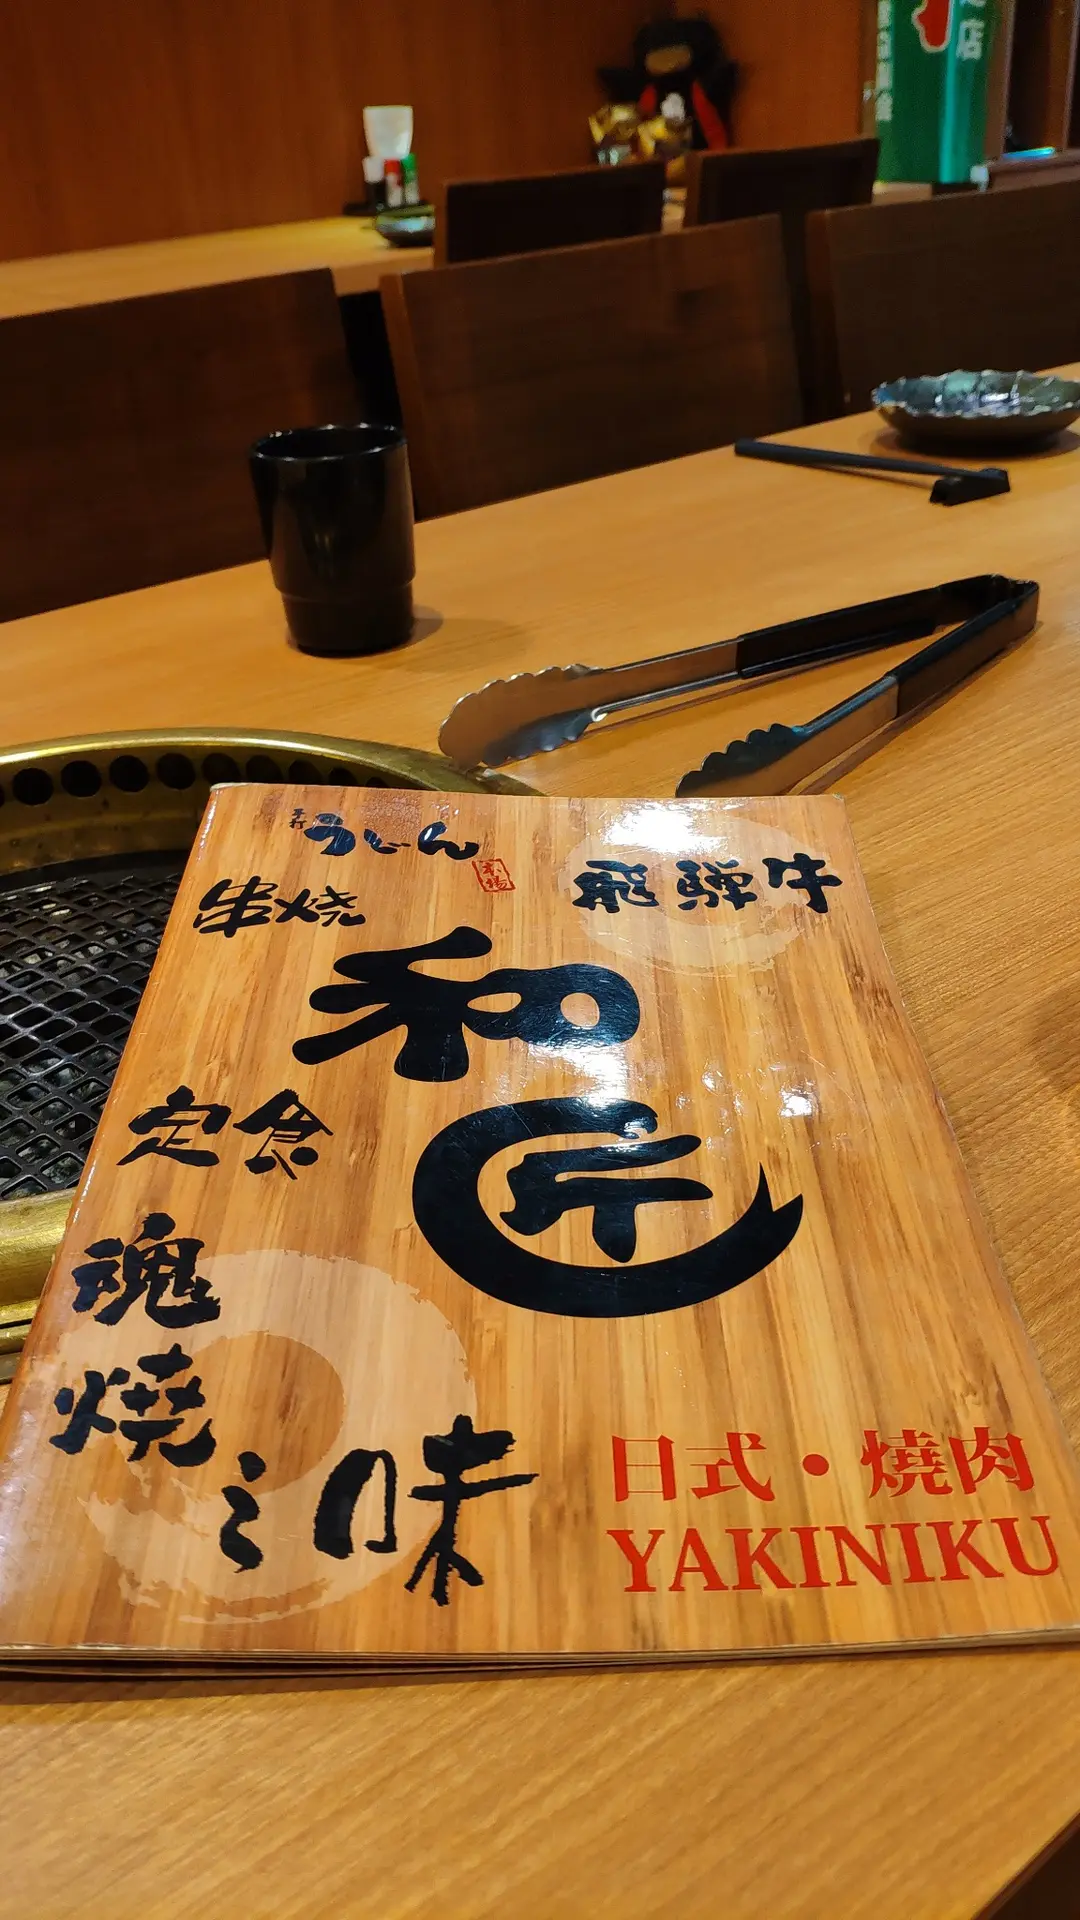 店
手打
うどん
本場
串焼
飛騨牛
和
匠
定食
魂
燒
之味
日式・燒肉
YAKINIKU